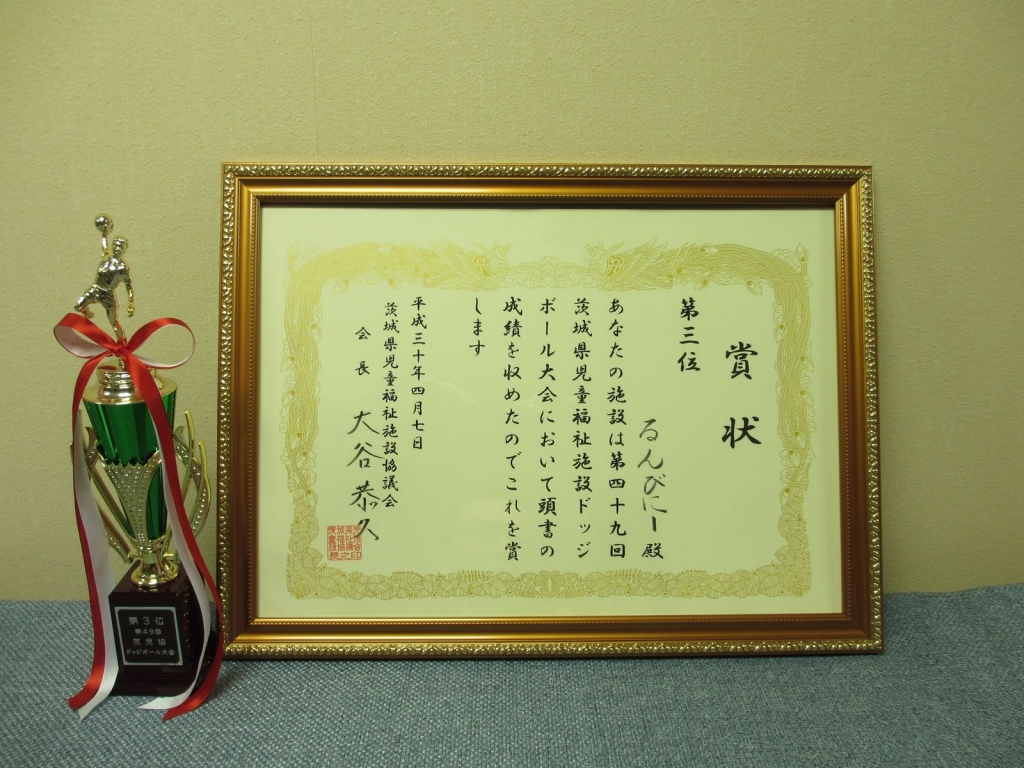 賞状
第三位
るんびにー殿
あなたの施設は第四十九回
茨城県児童福祉施設ドッジ
ボール大会において頭書の
成績を収めたのでこれを賞
します
平成三十年四月七日
茨城県児童福祉施設協議会
会長 大谷恭久
第3位
第49回
茨児協
ドッジボール大会